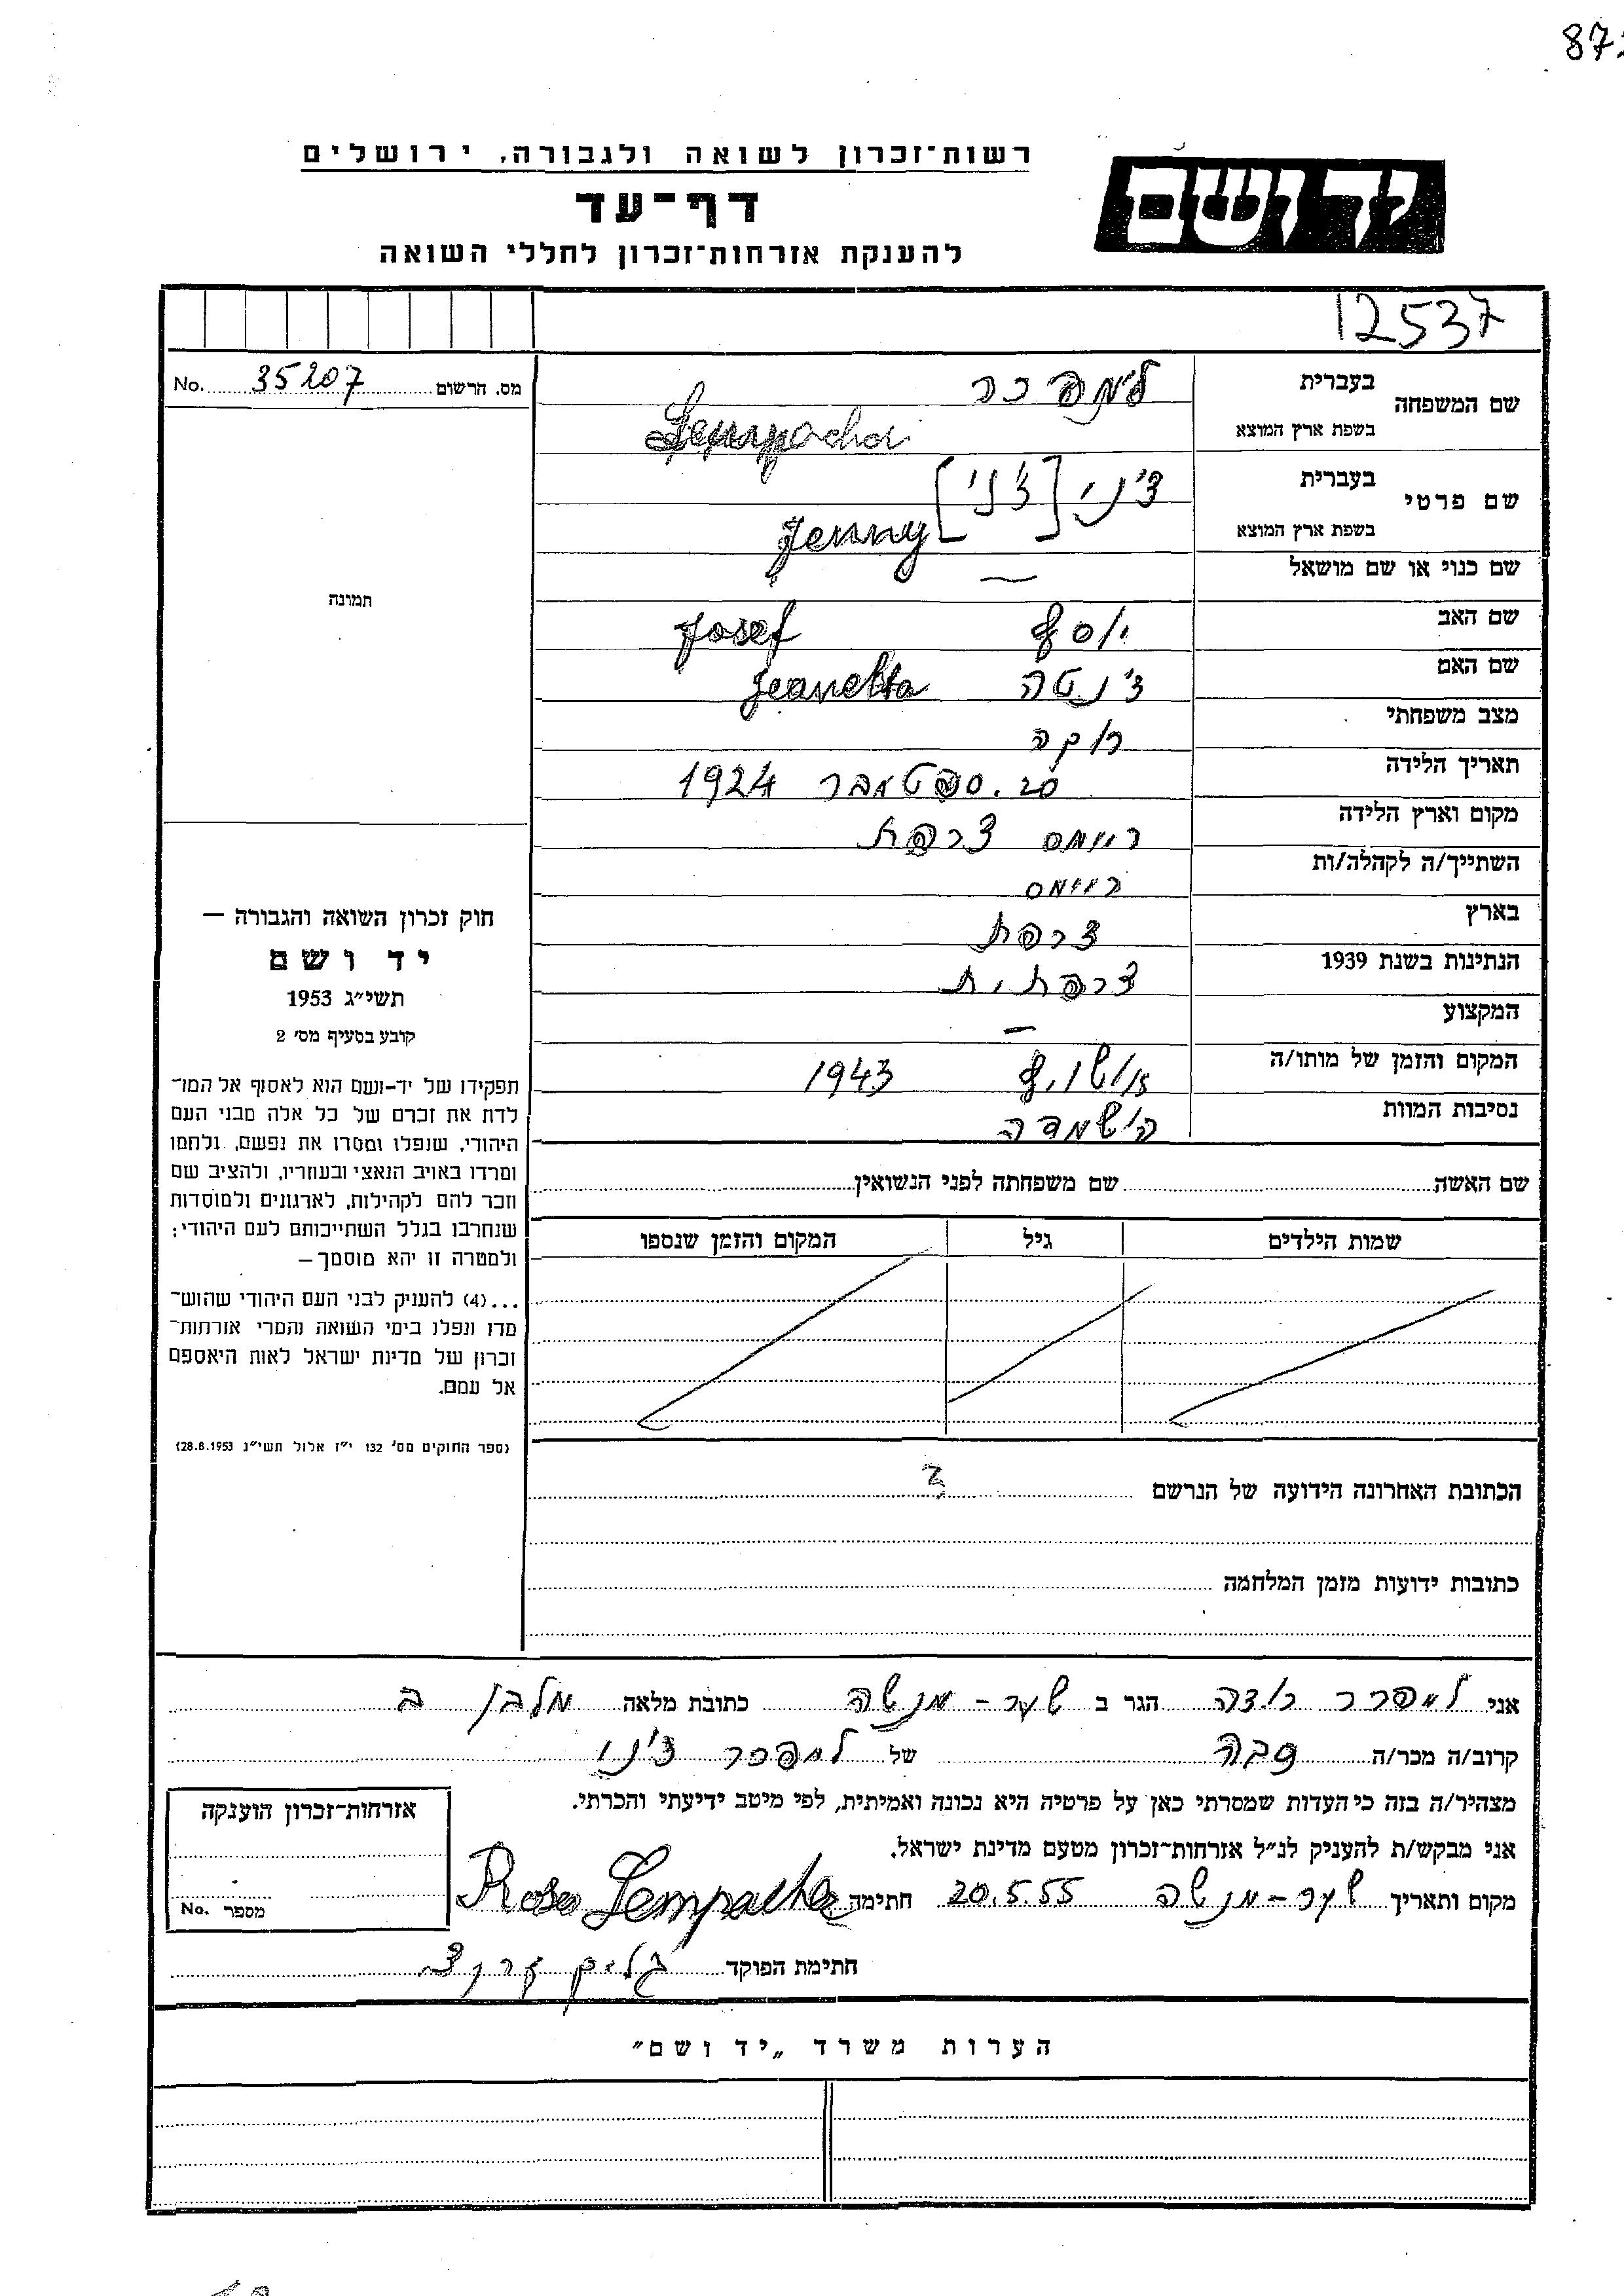 רשות־זכרון לשואה ולגבורה, ירושלים
יד ושם
דף־עד
להענקת אזרחות־זכרון לחללי השואה
12537
מס. הרשום 35207 No.
שם המשפחה
בעברית
בשפת ארץ המוצא
למפכר
שם פרטי
בעברית
ז'ני [ז'ני]
בשפת ארץ המוצא
Jenny
שם כנוי או שם מושאל —
שם האב יוסף Josef
שם האם ז'נטה Jeanetta
מצב משפחתי רוקה
תאריך הלידה 20. ספטמבר 1924
מקום וארץ הלידה ריימס צרפת
השתייך/ה לקהלה/ות ריימס
בארץ צרפת
הנתינות בשנת 1939 צרפתית
המקצוע —
המקום והזמן של מותו/ה 1943
נסיבות המוות הושמדה
תמונה
חוק זכרון השואה והגבורה —
יד ושם
תשי״ג 1953
קובע בסעיף מס׳ 2
תפקידו של יד־ושם הוא לאסוף אל המו־
לדת את זכרם של כל אלה מבני העם
היהודי, שנפלו ומסרו את נפשם, נלחמו
ומרדו באויב הנאצי ובעוזריו, ולהציב שם
וזכר להם לקהילות, לארגונים ולמוסדות
שנחרבו בגלל השתייכותם לעם היהודי;
ולמטרה זו יהא מוסמך —
...(4) להעניק לבני העם היהודי שהוש־
מדו ונפלו בימי השואה והמרי אזרחות־
זכרון של מדינת ישראל לאות היאספם
אל עמם.
(ספר החוקים מס׳ 132 י״ז אלול תשי״ג 28.8.1953)
שם האשה שם משפחתה לפני הנשואין
שמות הילדים גיל המקום והזמן שנספו
הכתובת האחרונה הידועה של הנרשם
כתובות ידועות מזמן המלחמה
אני רוזה הגר ב שער - מנשה כתובת מלאה מלבן ב
קרוב/ה מכר/ה סבה של למפכר ז'ני
מצהיר/ה בזה כי העדות שמסרתי כאן על פרטיה היא נכונה ואמיתית, לפי מיטב ידיעתי והכרתי.
אני מבקש/ת להעניק לנ״ל אזרחות־זכרון מטעם מדינת ישראל.
מקום ותאריך שער - מנשה 20.5.55 חתימה Rosa
חתימת הפוקד
אזרחות־זכרון הוענקה
מספר No.
הערות משרד „יד ושם״